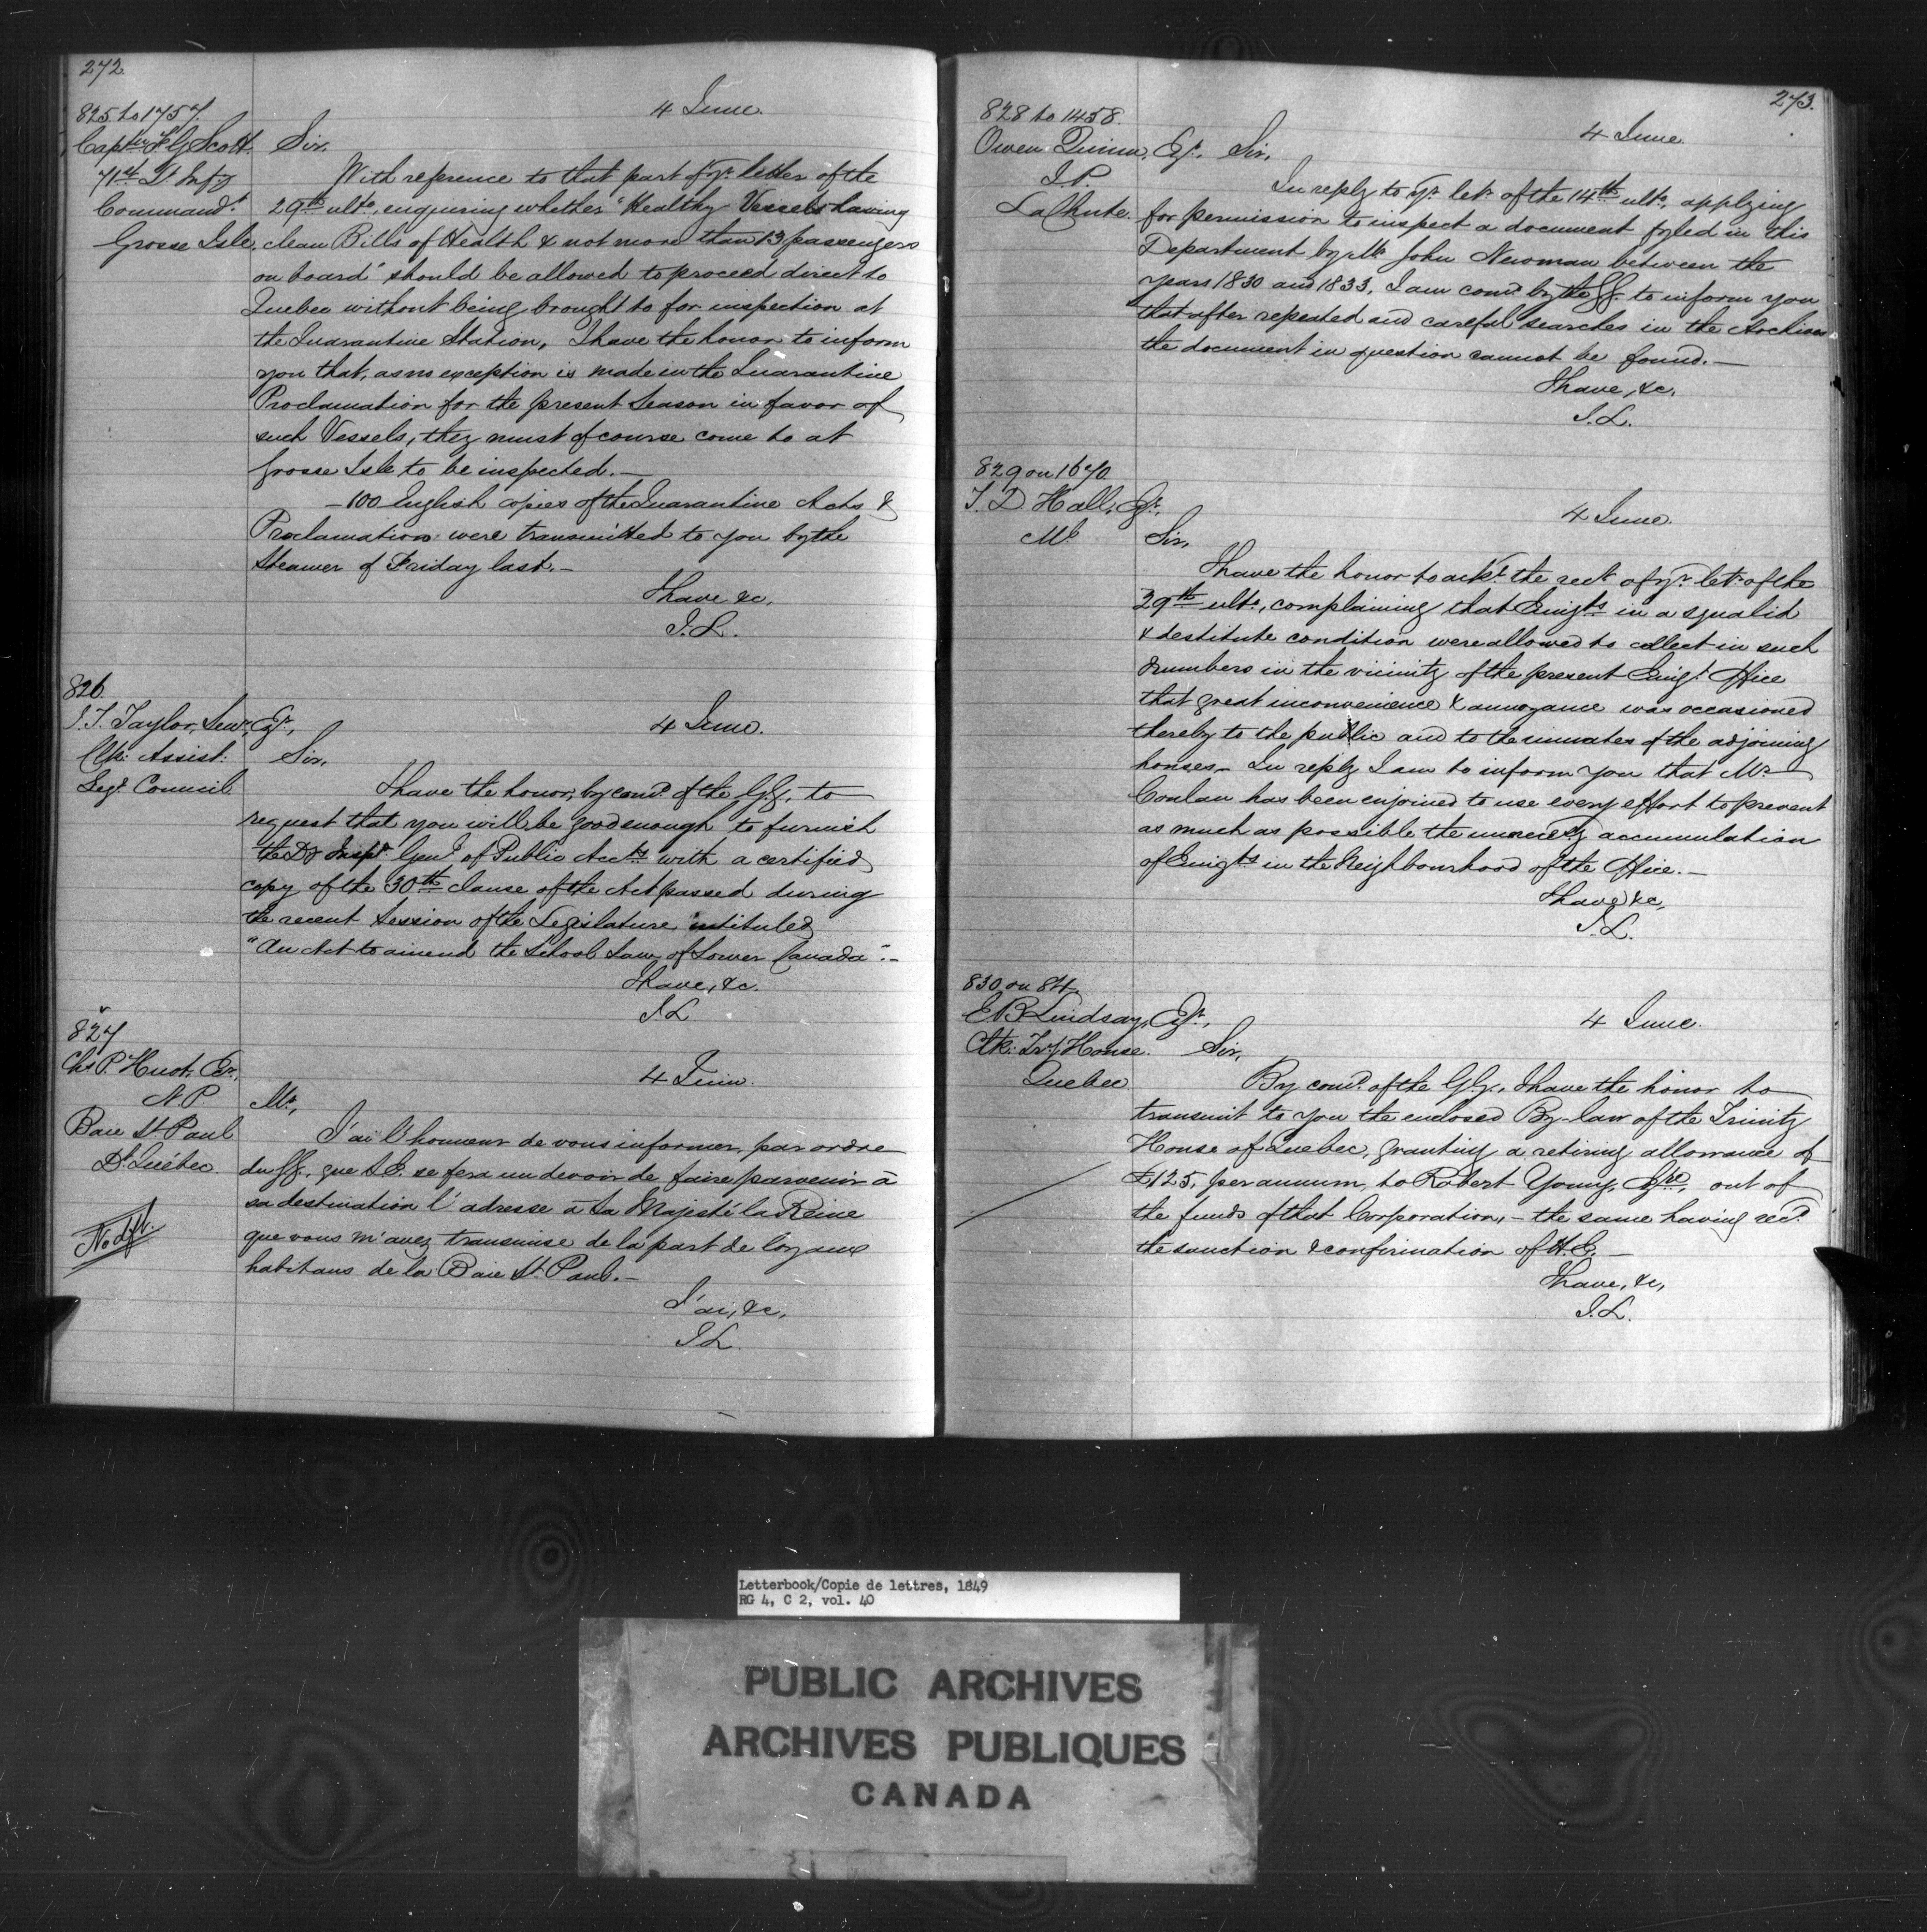 272
825 to 1757.
4 June.
Capt: F G Scott. Sir,
71st Lt Infy
Commandt
Grosse Isle,
With reference to that part of yr letter of the
29th ulto, enquiring whether "Healthy Vessels having
clean Bills of Health & not more than 13 passengers
on board" should be allowed to proceed direct to
Quebec without being brought to for inspection at
the Quarantine Station, I have the honor to inform
you that, as no exception is made in the Quarantine
Proclamation for the present Season in favor of
such Vessels, they must of course come to at
Grosse Isle to be inspected.—
—100 English copies of the Quarantine Acts &
Proclamations were transmitted to you by the
Steamer of Friday last.—
I have &c,
J.L.
826
J.T. Taylor, Senr, Esqr,
4 June.
Clk: Assist:
Legt Council
Sir,
I have the honor, by comd of the G.G. to
request that you will be good enough to furnish
the Dy Inspr Genl of Public Accts with a certified
copy of the 30th clause of the Act passed during
the recent Session of the Legislature intituled
"An Act to amend the School Law of Lower Canada".—
I have, &c.
J.L
827
Chs P. Huot, Er,
4 Juin.
N.P.
Baie St Paul
Dt Québec
No dft.
Mr,
J'ai l'honneur de vous informer, par ordre
du GG. que S.E. se fera un devoir de faire parvenir à
sa destination l'adresse à Sa Majesté la Reine
que vous m'avez transmise de la part de loyaux
habitans de la Baie St. Paul.—
J'ai, &c,
J.L.
273.
828 to 1458.
4 June
Owen Quinn, Esqr. Sir,
J.P.
LaChute.
In reply to yr letr of the 14th ulto, applying
for permission to inspect a document fyled in this
Department by Mr John Newman between the
years 1830 and 1833, I am comd by the GG. to inform you
that after repeated and careful searches in the Archives
the document in question cannot be found.—
I have, &c,
J.L.
829 on 1670
T. D Hall, Esqr,
4 June.
Ml
Sir,
I have the honor to ackt the rect of yr letr of the
29th ulto, complaining that Emigts in a squalid
& destitute condition were allowed to collect in such
numbers in the vicinity of the present Emigt Office
that great inconvenience & annoyance was occasioned
thereby to the public and to the inmates of the adjoining
houses— In reply I am to inform you that Mr
Conlan has been enjoined to use every effort to prevent
as much as possible the unnecessy accumulation
of Emigts in the Neighbourhood of the Office.—
I have &c,
J.L.
830 on 84
E B Lindsay, Esqr,
4 June.
Clk: Try House.
Quebec
Sir,
By comd of the G.G., I have the honor to
transmit to you the enclosed By-law of the Trinity
House of Quebec, granting a retiring allowance of
£125, per annum, to Robert Young, Esqre, out of
the funds of that Corporation,— the same having recd
the sanction & confirmation of H.E.—
I have, &c,
J.L.
Letterbook/Copie de lettres, 1849
RG 4, C 2, vol. 40
PUBLIC ARCHIVES
ARCHIVES PUBLIQUES
CANADA